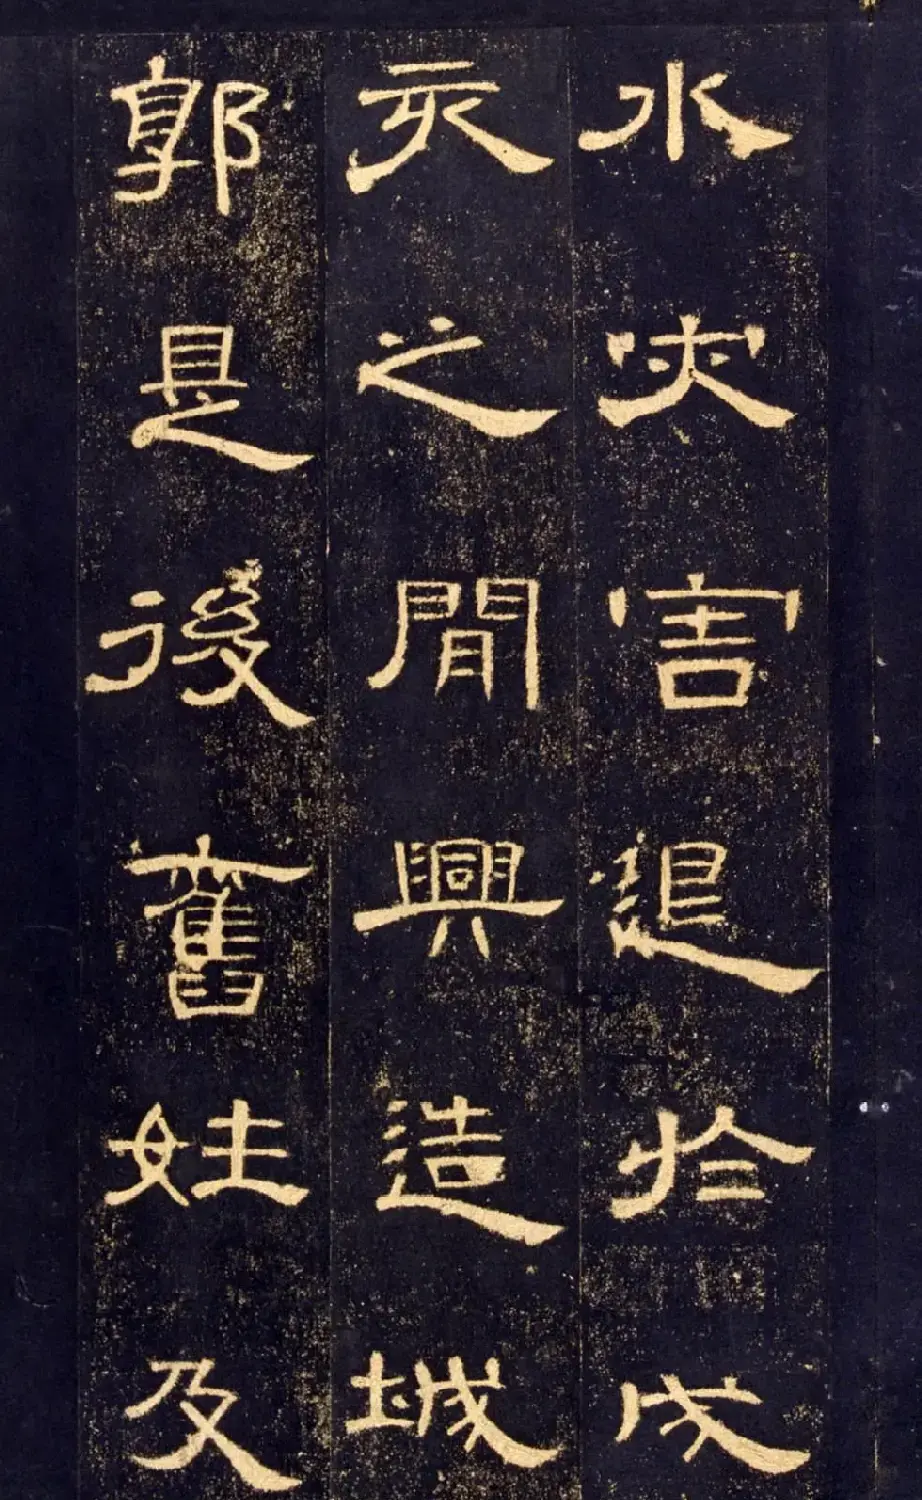 水灾害退於戌
亥之間興造城
郭是後舊姓及